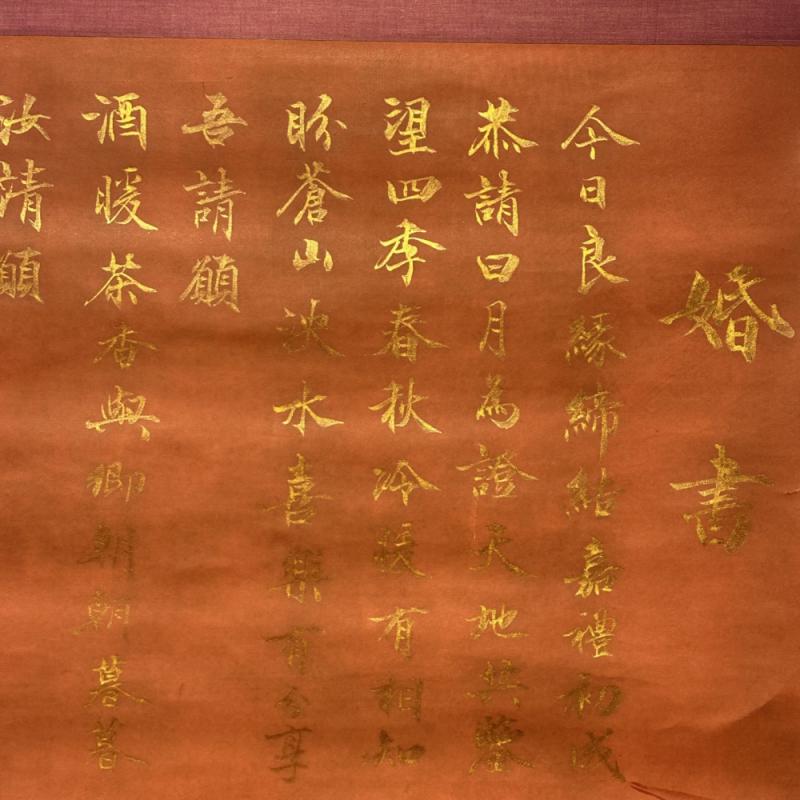 婚書
今日良緣締結嘉禮初成
恭請日月為證天地共鑒
望四季春秋冷暖有相知
盼蒼山泱水喜樂有分享
吾請願
酒暖茶香與卿朝朝暮暮
汝請願